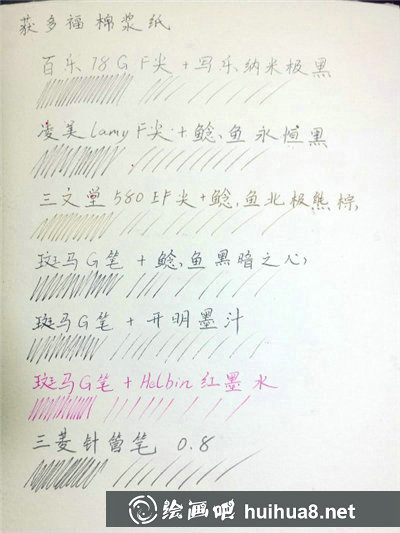 获多福棉浆纸
百乐78G F尖+写乐纳米极黑
凌美lamy F尖+鲶鱼永恒黑
三文堂580 EF尖+鲶鱼北极熊棕
斑马G笔+鲶鱼黑暗之心
斑马G笔+开明墨汁
斑马G笔+Helbin红墨水
三菱针管笔 0.8
绘画吧 huihua8.net